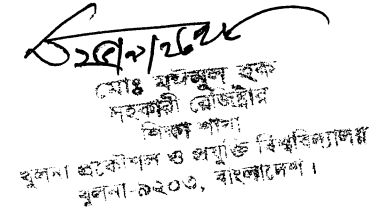 মোঃ মঈনুল হক
সহকারী রেজিস্ট্রার
শিক্ষা শাখা
খুলনা প্রকৌশল ও প্রযুক্তি বিশ্ববিদ্যালয়
খুলনা-৯২০৩, বাংলাদেশ।